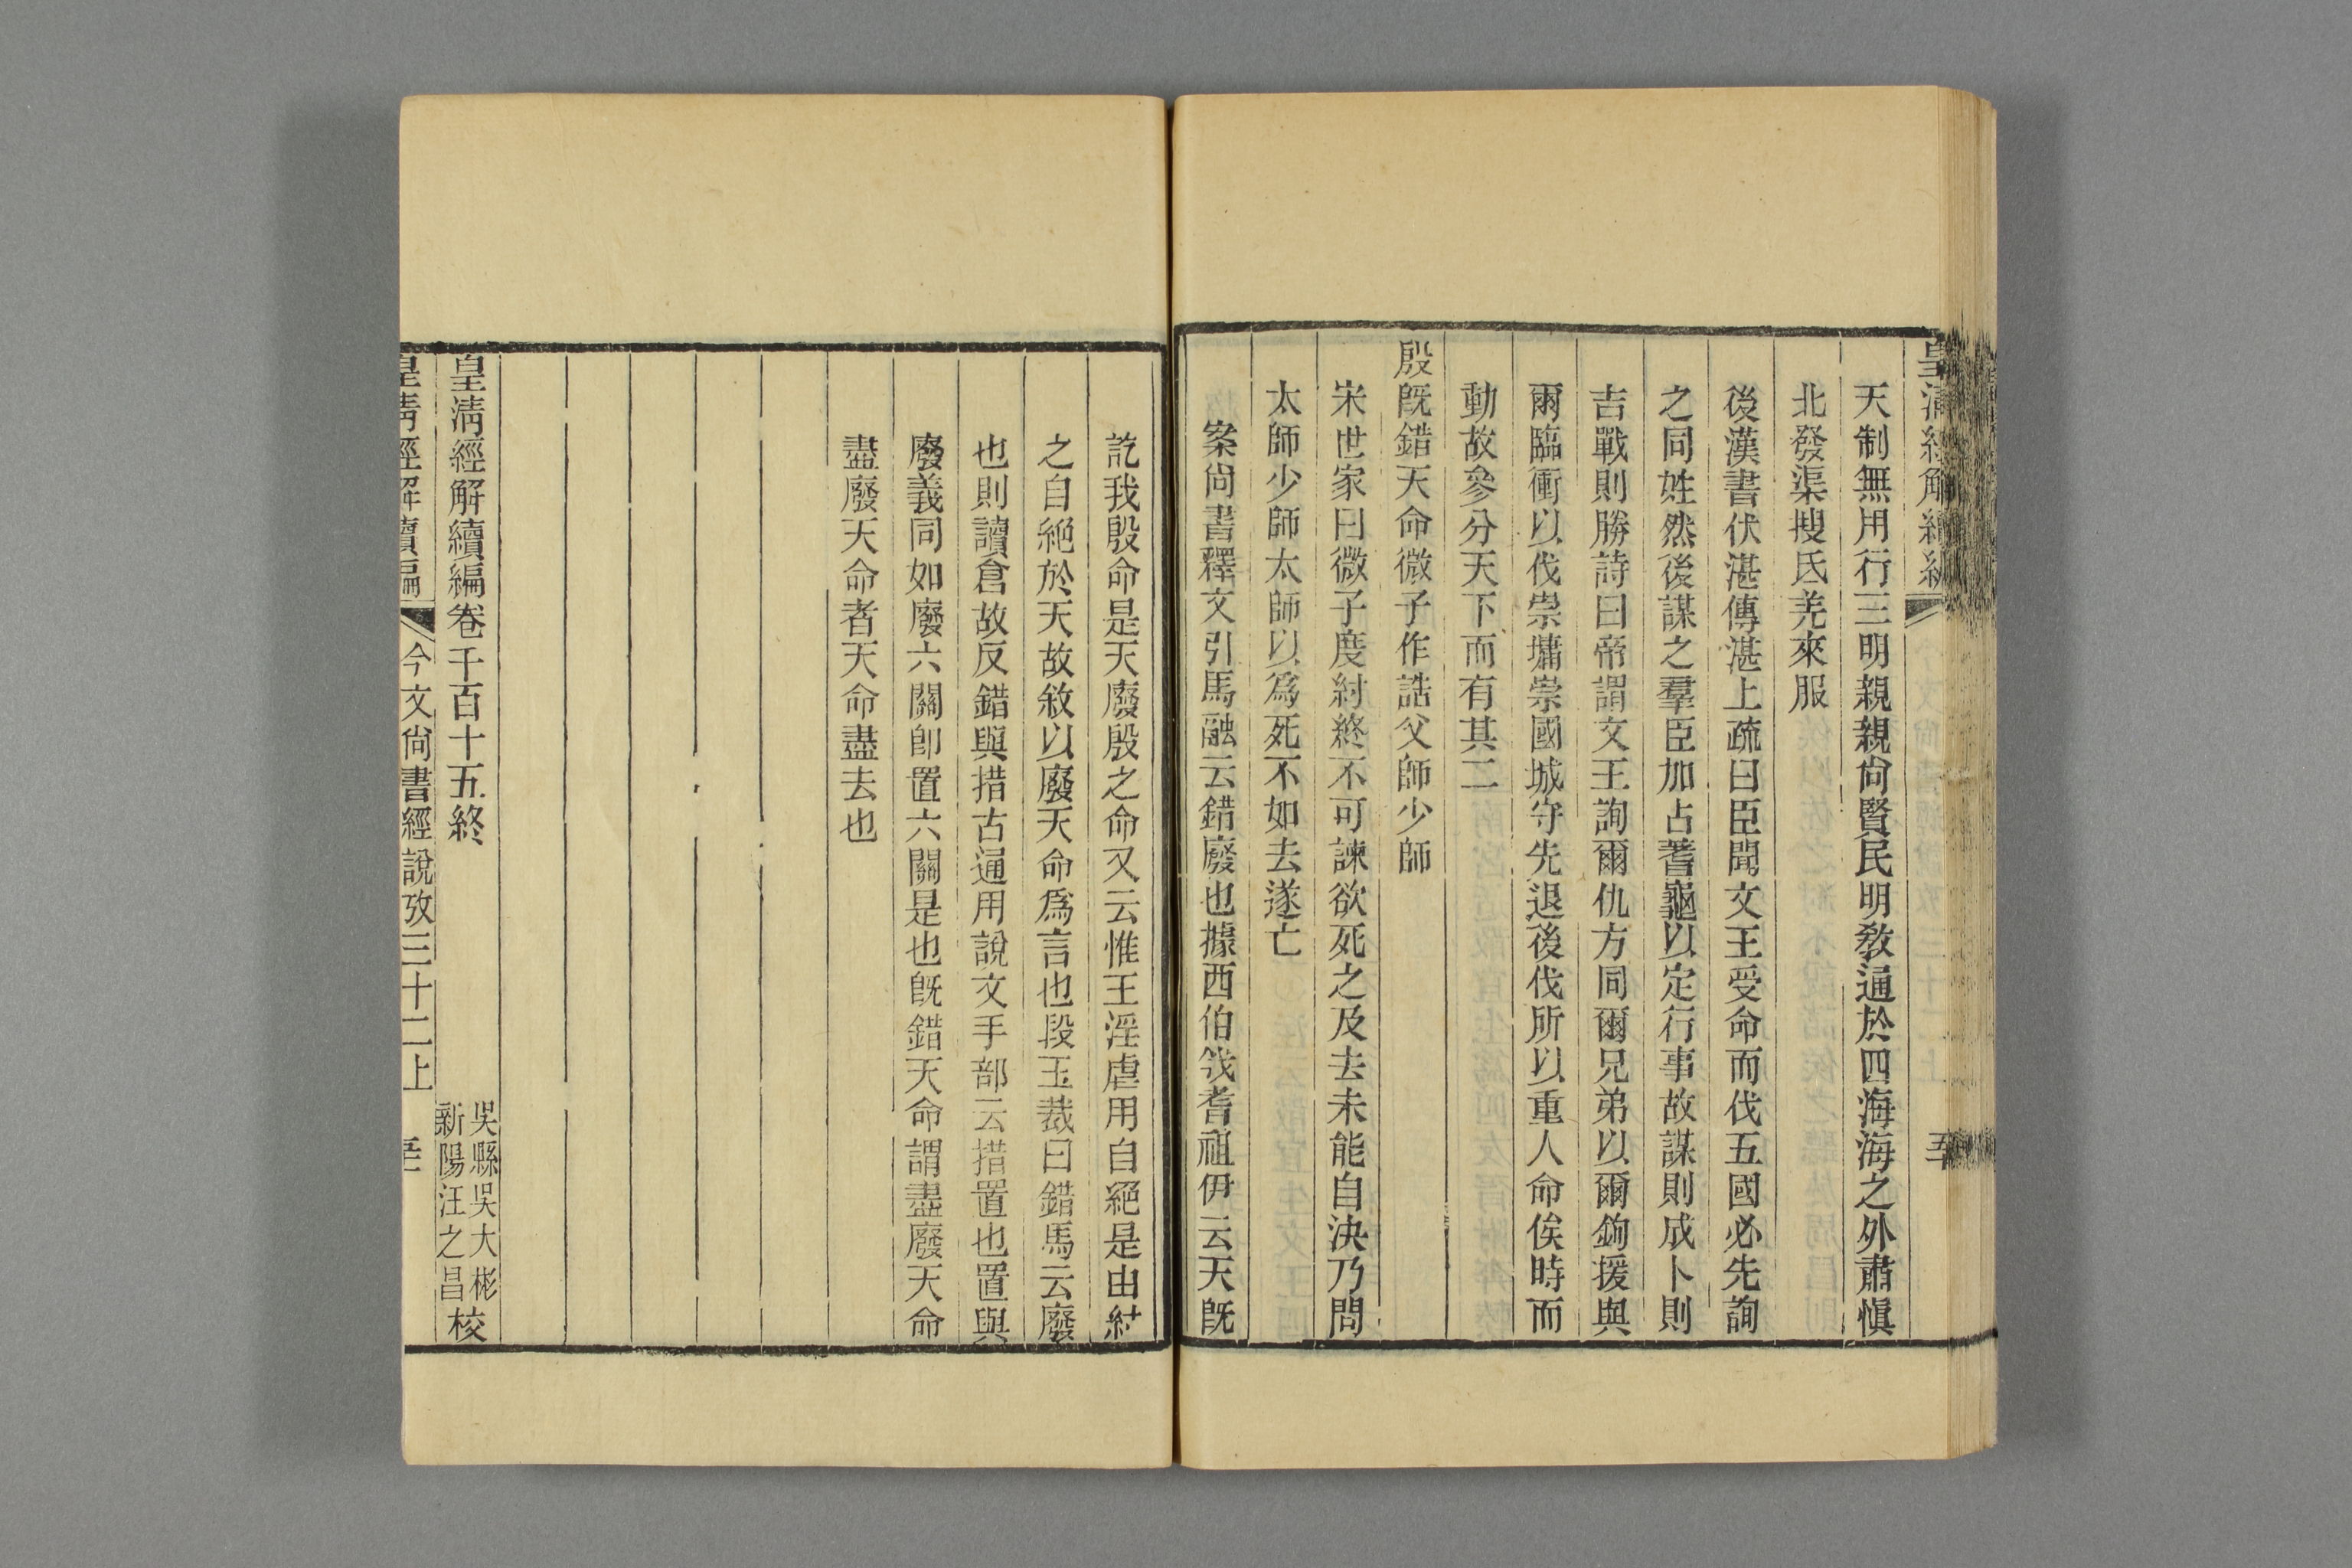 天制無用行三明親親尙賢民明敎通於四海海之外肅愼
北發渠搜氐羌來服
後漢書伏湛傳湛上疏曰臣聞文王受命而伐五國必先詢
之同姓然後謀之羣臣加占蓍龜以定行事故謀則成卜則
吉戰則勝詩曰帝謂文王詢爾仇方同爾兄弟以爾鉤援與
爾臨衝以伐崇墉崇國城守先退後伐所以重人命俟時而
動故參分天下而有其二
殷旣錯天命微子作誥父師少師
宋世家曰微子度紂終不可諫欲死之及去未能自決乃問
太師少師太師以爲死不如去遂亡
案尙書釋文引馬融云錯廢也據西伯㦵耆祖伊云天旣
訖我殷命是天廢殷之命又云惟王淫虐用自絕是由紂
之自絕於天故敘以廢天命爲言也段玉裁曰錯馬云廢
也則讀倉故反錯與措古通用說文手部云措置也置與
廢義同如廢六關卽置六關是也旣錯天命謂盡廢天命
盡廢天命者天命盡去也
皇淸經解續編卷千百十五終
吳縣吳大彬
新陽汪之昌
校
皇淸經解續編
今文尙書經說攷三十二上